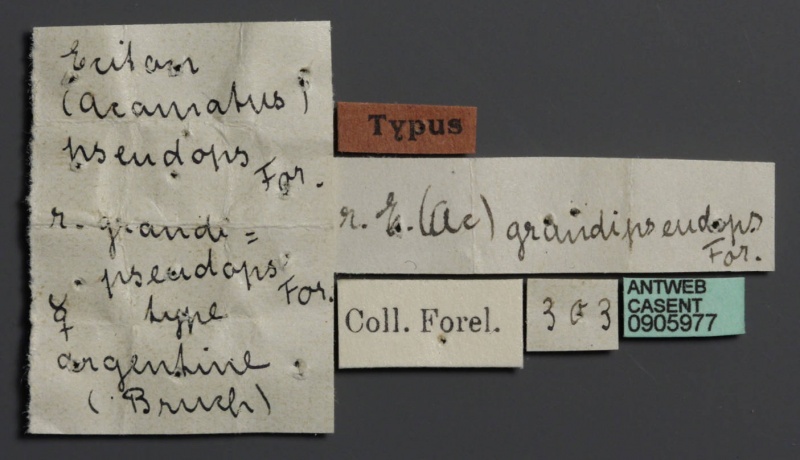 Eciton
(Acamatus)
pseudops
For.
r. grandi=
pseudops
For.
☿ type
argentine
(Bruch)
Typus
r. E. (Ac) grandipseudops
For.
Coll. Forel.
303
ANTWEB
CASENT
0905977